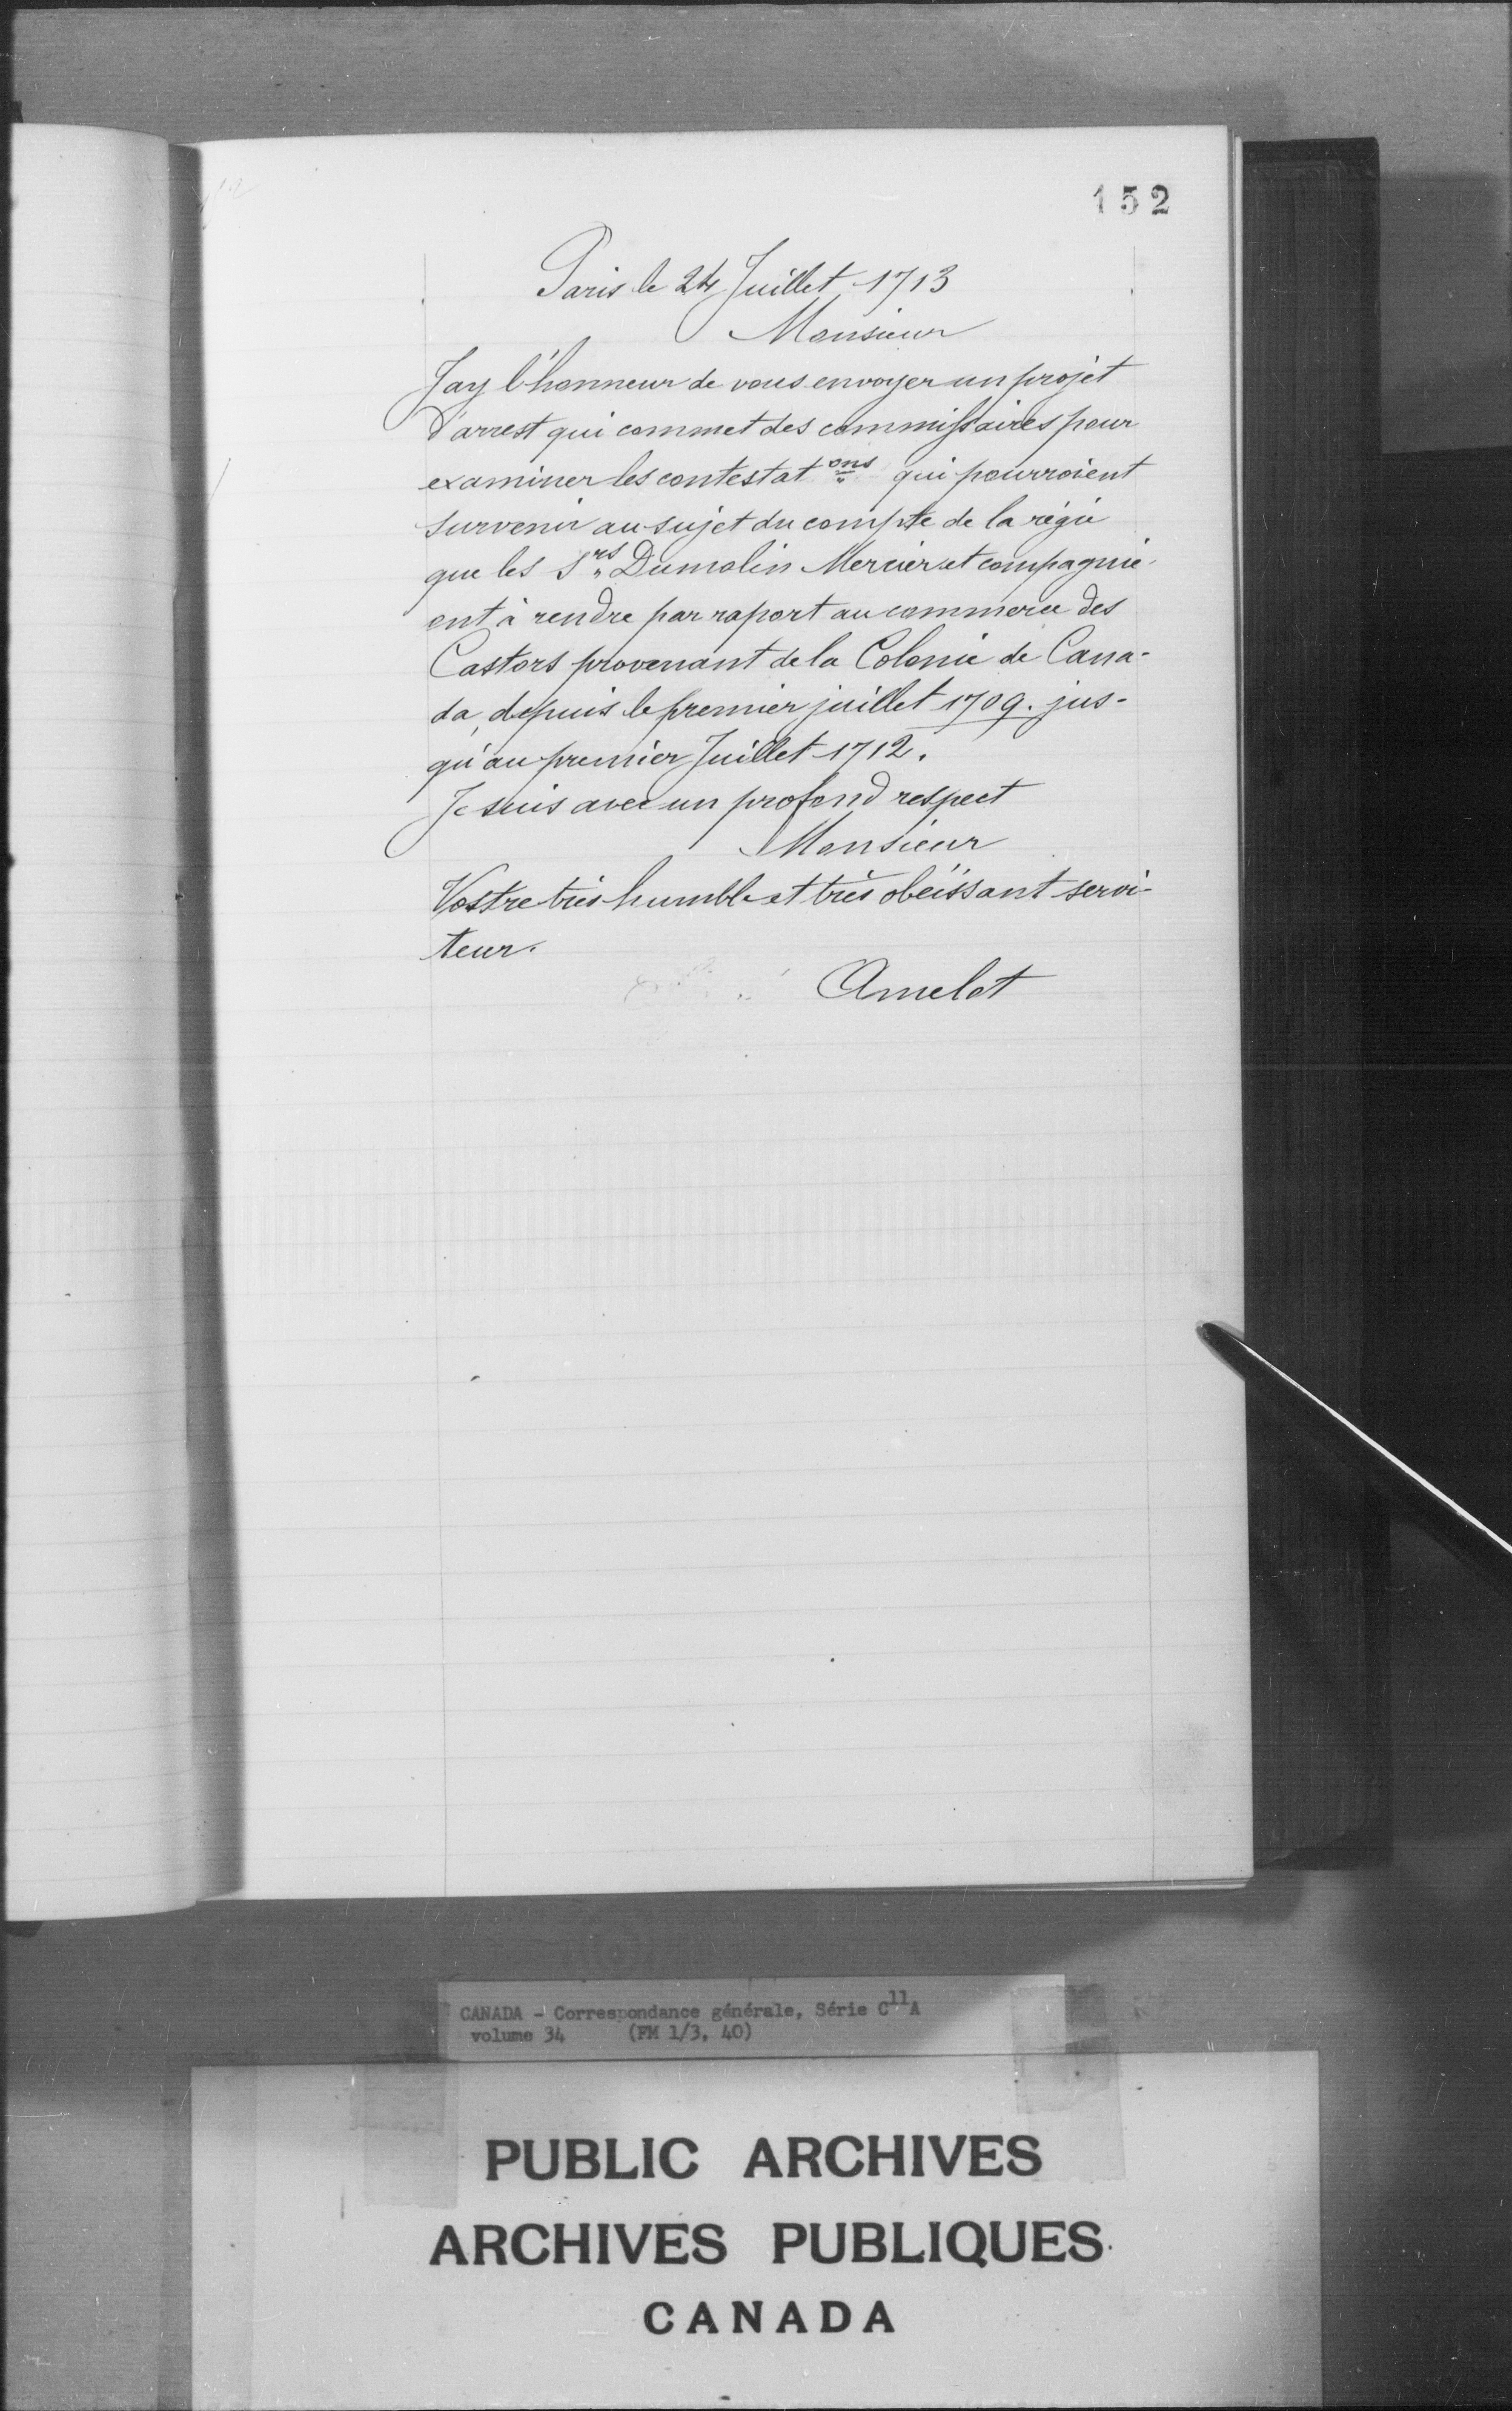 152
Paris le 24 Juillet 1713
Monsieur
Jay l'honneur de vous envoyer un projet
d'arrest qui commet des commissaires pour
examiner les contestat ons qui pourroient
survenir au sujet du compte de la régie
que les Srs Dumolin Mercier et compagnie
ont à rendre par raport au commerce des
Castors provenant de la Colonie de Cana-
da, depuis le premier juillet 1709. jus-
qu'au premier Juillet 1712.
Je suis avec un profond respect
Monsieur
Vostre très humble et très obéissant servi-
teur.
Amelot
CANADA - Correspondance générale, Série C11A
volume 34 (FM 1/3, 40)
PUBLIC ARCHIVES
ARCHIVES PUBLIQUES
CANADA